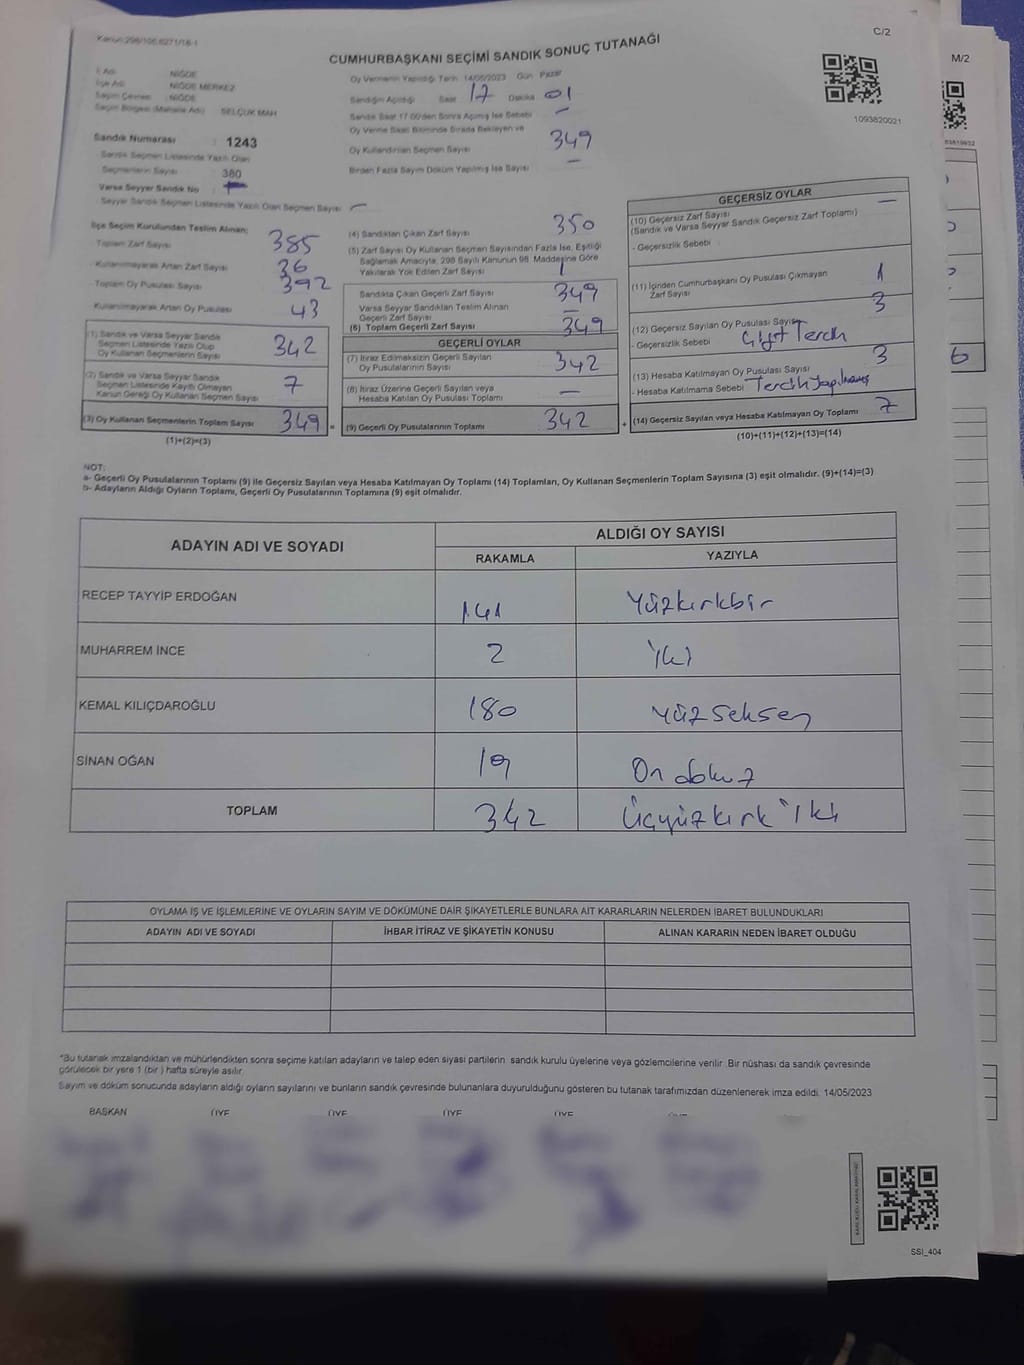 Kanun:298/106,6271/18-1
C/2
CUMHURBAŞKANI SEÇİMİ SANDIK SONUÇ TUTANAĞI
M/2
İl Adı NİĞDE
İlçe Adı NİĞDE MERKEZ
Seçim Çevresi : NİĞDE
Seçim Bölgesi (Mahalle Adı) SELÇUK MAH
Sandık Numarası : 1243
Sandık Seçmen Listesinde Yazılı Olan
Seçmenlerin Sayısı : 380
Varsa Seyyar Sandık No
Seyyar Sandık Seçmen Listesinde Yazılı Olan Seçmen Sayısı —
Oy Vermenin Yapıldığı Tarih 14/05/2023 Gün Pazar
Sandığın Açıldığı Saat 17 Dakika 01
Sandık Saat 17.00'den Sonra Açılmış İse Sebebi —
Oy Verme Saati Bitiminde Sırada Bekleyen ve
Oy Kullandırılan Seçmen Sayısı 349
Birden Fazla Sayım Döküm Yapılmış İse Sayısı —
1093820021
İlçe Seçim Kurulundan Teslim Alınan;
Toplam Zarf Sayısı 385
- Kullanılmayarak Artan Zarf Sayısı 36
- Toplam Oy Pusulası Sayısı 392
- Kullanılmayarak Artan Oy Pusulası 43
(1) Sandık ve Varsa Seyyar Sandık
Seçmen Listesinde Yazılı Olup
Oy Kullanan Seçmenlerin Sayısı 342
(2) Sandık ve Varsa Seyyar Sandık
Seçmen Listesinde Kayıtlı Olmayan
Kanun Gereği Oy Kullanan Seçmen Sayısı 7
(3) Oy Kullanan Seçmenlerin Toplam Sayısı 349 =
(1)+(2)=(3)
(4) Sandıktan Çıkan Zarf Sayısı 350
(5) Zarf Sayısı Oy Kullanan Seçmen Sayısından Fazla İse, Eşitliği
Sağlamak Amacıyla, 298 Sayılı Kanunun 98. Maddesine Göre
Yakılarak Yok Edilen Zarf Sayısı 1
Sandıkta Çıkan Geçerli Zarf Sayısı 349
Varsa Seyyar Sandıktan Teslim Alınan
Geçerli Zarf Sayısı —
(6) Toplam Geçerli Zarf Sayısı 349
GEÇERLİ OYLAR
(7) İtiraz Edilmeksizin Geçerli Sayılan
Oy Pusulalarının Sayısı 342
(8) İtiraz Üzerine Geçerli Sayılan veya
Hesaba Katılan Oy Pusulası Toplamı —
(9) Geçerli Oy Pusulalarının Toplamı 342 +
GEÇERSİZ OYLAR
(10) Geçersiz Zarf Sayısı —
(Sandık ve Varsa Seyyar Sandık Geçersiz Zarf Toplamı)
- Geçersizlik Sebebi
(11) İçinden Cumhurbaşkanı Oy Pusulası Çıkmayan
Zarf Sayısı 1
(12) Geçersiz Sayılan Oy Pusulası Sayısı 3
- Geçersizlik Sebebi Çift Tercih
(13) Hesaba Katılmayan Oy Pusulası Sayısı 3
- Hesaba Katılmama Sebebi
(14) Geçersiz Sayılan veya Hesaba Katılmayan Oy Toplamı 7
(10)+(11)+(12)+(13)=(14)
6
NOT:
a- Geçerli Oy Pusulalarının Toplamı (9) ile Geçersiz Sayılan veya Hesaba Katılmayan Oy Toplamı (14) Toplamları, Oy Kullanan Seçmenlerin Toplam Sayısına (3) eşit olmalıdır. (9)+(14)=(3)
b- Adayların Aldığı Oyların Toplamı, Geçerli Oy Pusulalarının Toplamına (9) eşit olmalıdır.
ADAYIN ADI VE SOYADI
ALDIĞI OY SAYISI
RAKAMLA YAZIYLA
RECEP TAYYİP ERDOĞAN 141 Yüzkırkbir
MUHARREM İNCE 2 İki
KEMAL KILIÇDAROĞLU 180 Yüzseksen
SİNAN OĞAN 19 On dokuz
TOPLAM 342 Üçyüzkırk iki
OYLAMA İŞ VE İŞLEMLERİNE VE OYLARIN SAYIM VE DÖKÜMÜNE DAİR ŞİKAYETLERLE BUNLARA AİT KARARLARIN NELERDEN İBARET BULUNDUKLARI
ADAYIN ADI VE SOYADI İHBAR İTİRAZ VE ŞİKAYETİN KONUSU ALINAN KARARIN NEDEN İBARET OLDUĞU
*Bu tutanak imzalandıktan ve mühürlendikten sonra seçime katılan adayların ve talep eden siyasi partilerin sandık kurulu üyelerine veya gözlemcilerine verilir. Bir nüshası da sandık çevresinde
görülecek bir yere 1 (bir ) hafta süreyle asılır.
Sayım ve döküm sonucunda adayların aldığı oyların sayılarını ve bunların sandık çevresinde bulunanlara duyurulduğunu gösteren bu tutanak tarafımızdan düzenlenerek imza edildi. 14/05/2023
BAŞKAN ÜYE ÜYE ÜYE ÜYE ÜYE
SSI_404